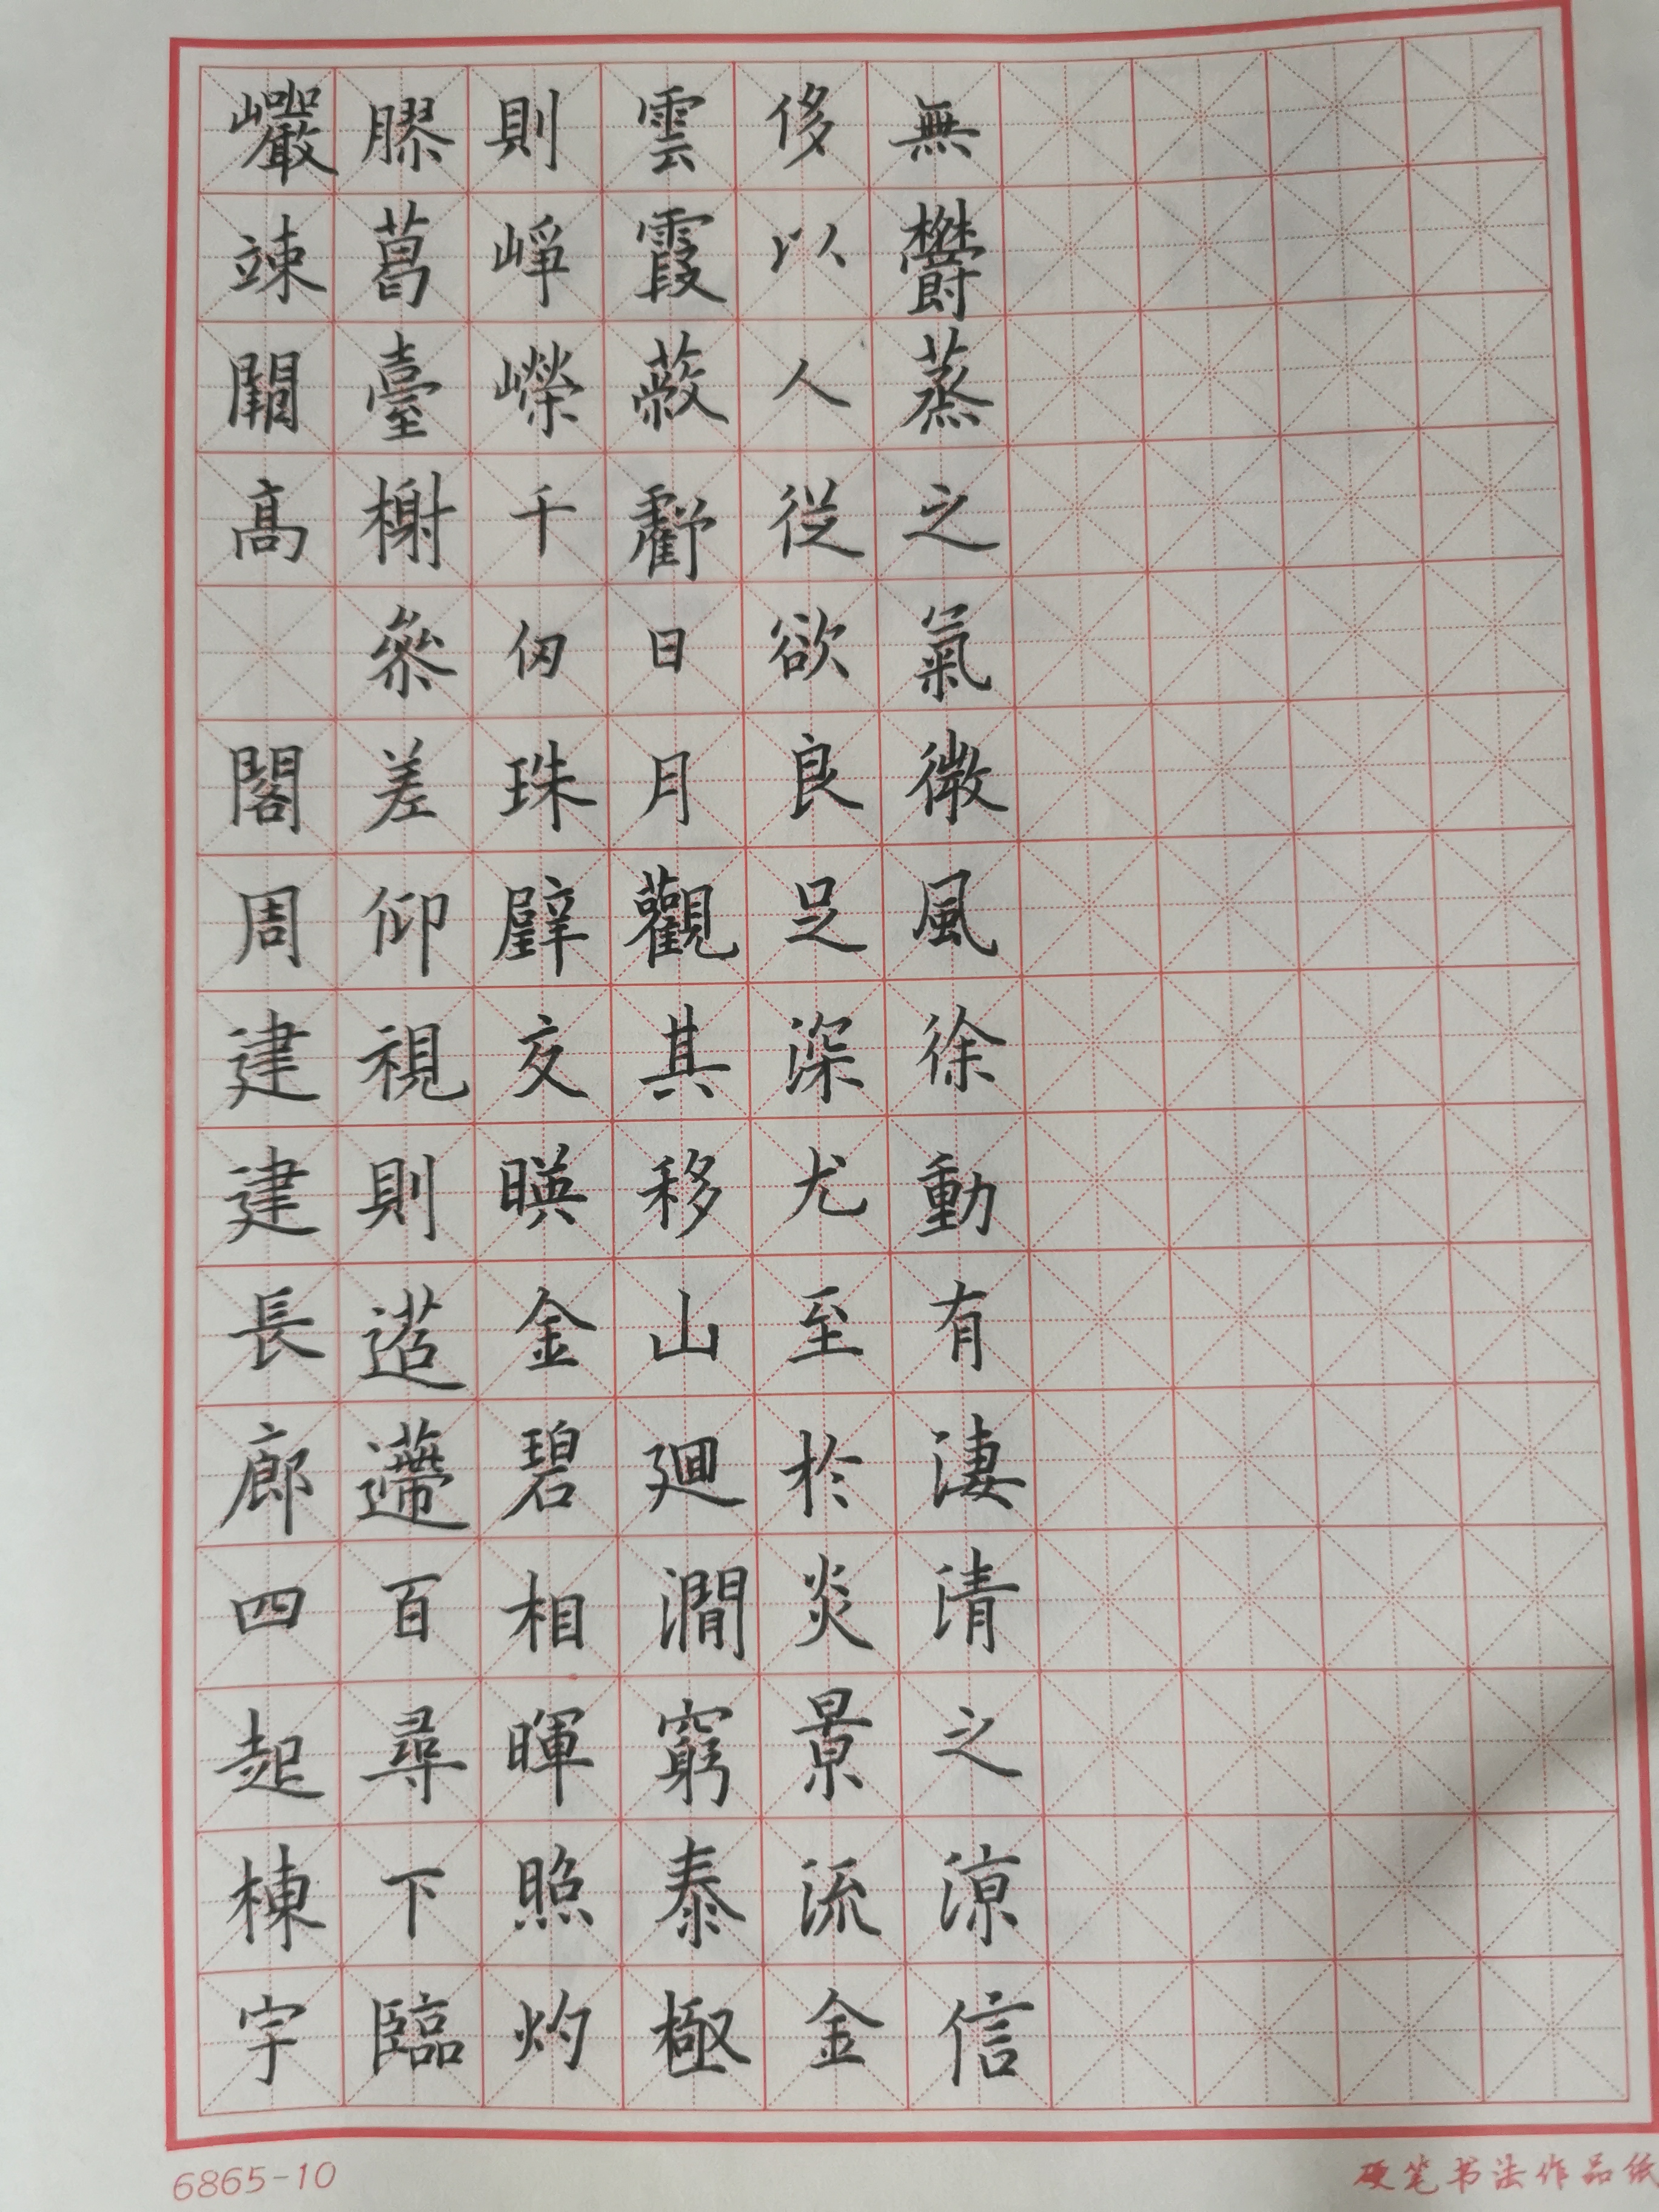 巖竦闕高 閣周建建長廊四起棟宇
膠葛臺榭叅差仰視則迢遰百尋下臨
則崢嶸千仞珠璧交暎金碧相暉照灼
雲霞蔽虧日月觀其移山廻澗窮泰極
侈以人從欲良足深尤至於炎景流金
無欝蒸之氣微風徐動有淒清之涼信
6865-10
硬笔书法作品纸